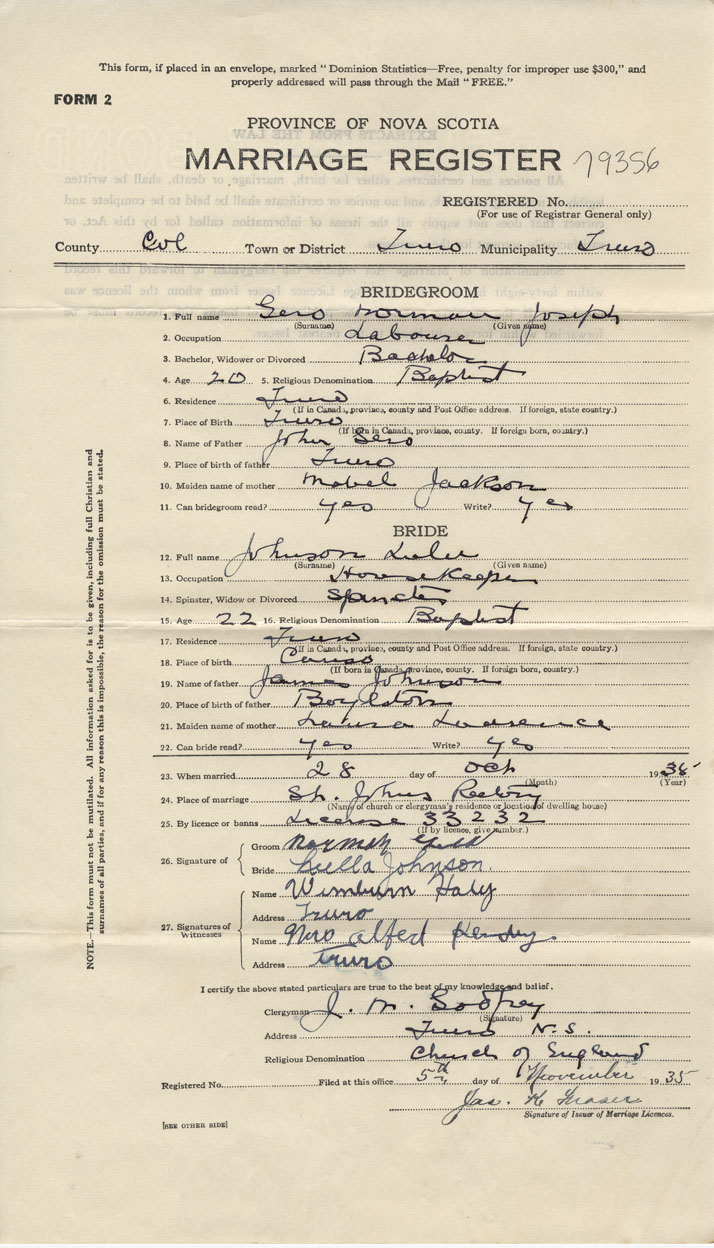 This form, if placed in an envelope, marked "Dominion Statistics—Free, penalty for improper use $300," and
properly addressed will pass through the Mail "FREE."
FORM 2
PROVINCE OF NOVA SCOTIA
MARRIAGE REGISTER 79356
REGISTERED No.
(For use of Registrar General only)
County Col Town or District Truro Municipality Truro
BRIDEGROOM
1. Full name Gero Norman Joseph
(Surname) (Given name)
2. Occupation Labourer
3. Bachelor, Widower or Divorced Bachelor
4. Age 20 5. Religious Denomination Baptist
6. Residence Truro
(If in Canada, province, county and Post Office address. If foreign, state country.)
7. Place of Birth Truro
(If born in Canada, province, county. If foreign born, country.)
8. Name of Father John Gero
9. Place of birth of father Truro
10. Maiden name of mother Mabel Jackson
11. Can bridegroom read? yes Write? yes
BRIDE
12. Full name Johnson Lulu
(Surname) (Given name)
13. Occupation Housekeeper
14. Spinster, Widow or Divorced Spinster
15. Age 22 16. Religious Denomination Baptist
17. Residence Truro
(If in Canada, province, county and Post Office address. If foreign, state country.)
18. Place of birth Canso
(If born in Canada, province, county. If foreign born, country.)
19. Name of father James Johnson
20. Place of birth of father Boylston
21. Maiden name of mother Laura Lawrence
22. Can bride read? yes Write? yes
23. When married 28 day of Oct 1935
(Month) (Year)
24. Place of marriage St. Johns Rectory
(Name of church or clergyman's residence or location of dwelling house)
25. By licence or banns License 33232
(If by licence, give number.)
26. Signature of
Groom Norman
Bride Luella Johnson.
27. Signatures of Witnesses
Name Wimburn Haly
Address Truro
Name Mrs Alfred
Address Truro
I certify the above stated particulars are true to the best of my knowledge and belief.
Clergyman J. M. Godfrey
(Signature)
Address Truro N.S.
Religious Denomination Church of England
Registered No. Filed at this office 5th day of November 1935
Jas. K Fraser
Signature of Issuer of Marriage Licences.
[SEE OTHER SIDE]
NOTE.—This form must not be mutilated. All information asked for is to be given, including full Christian and
surnames of all parties, and if for any reason this is impossible, the reason for the omission must be stated.